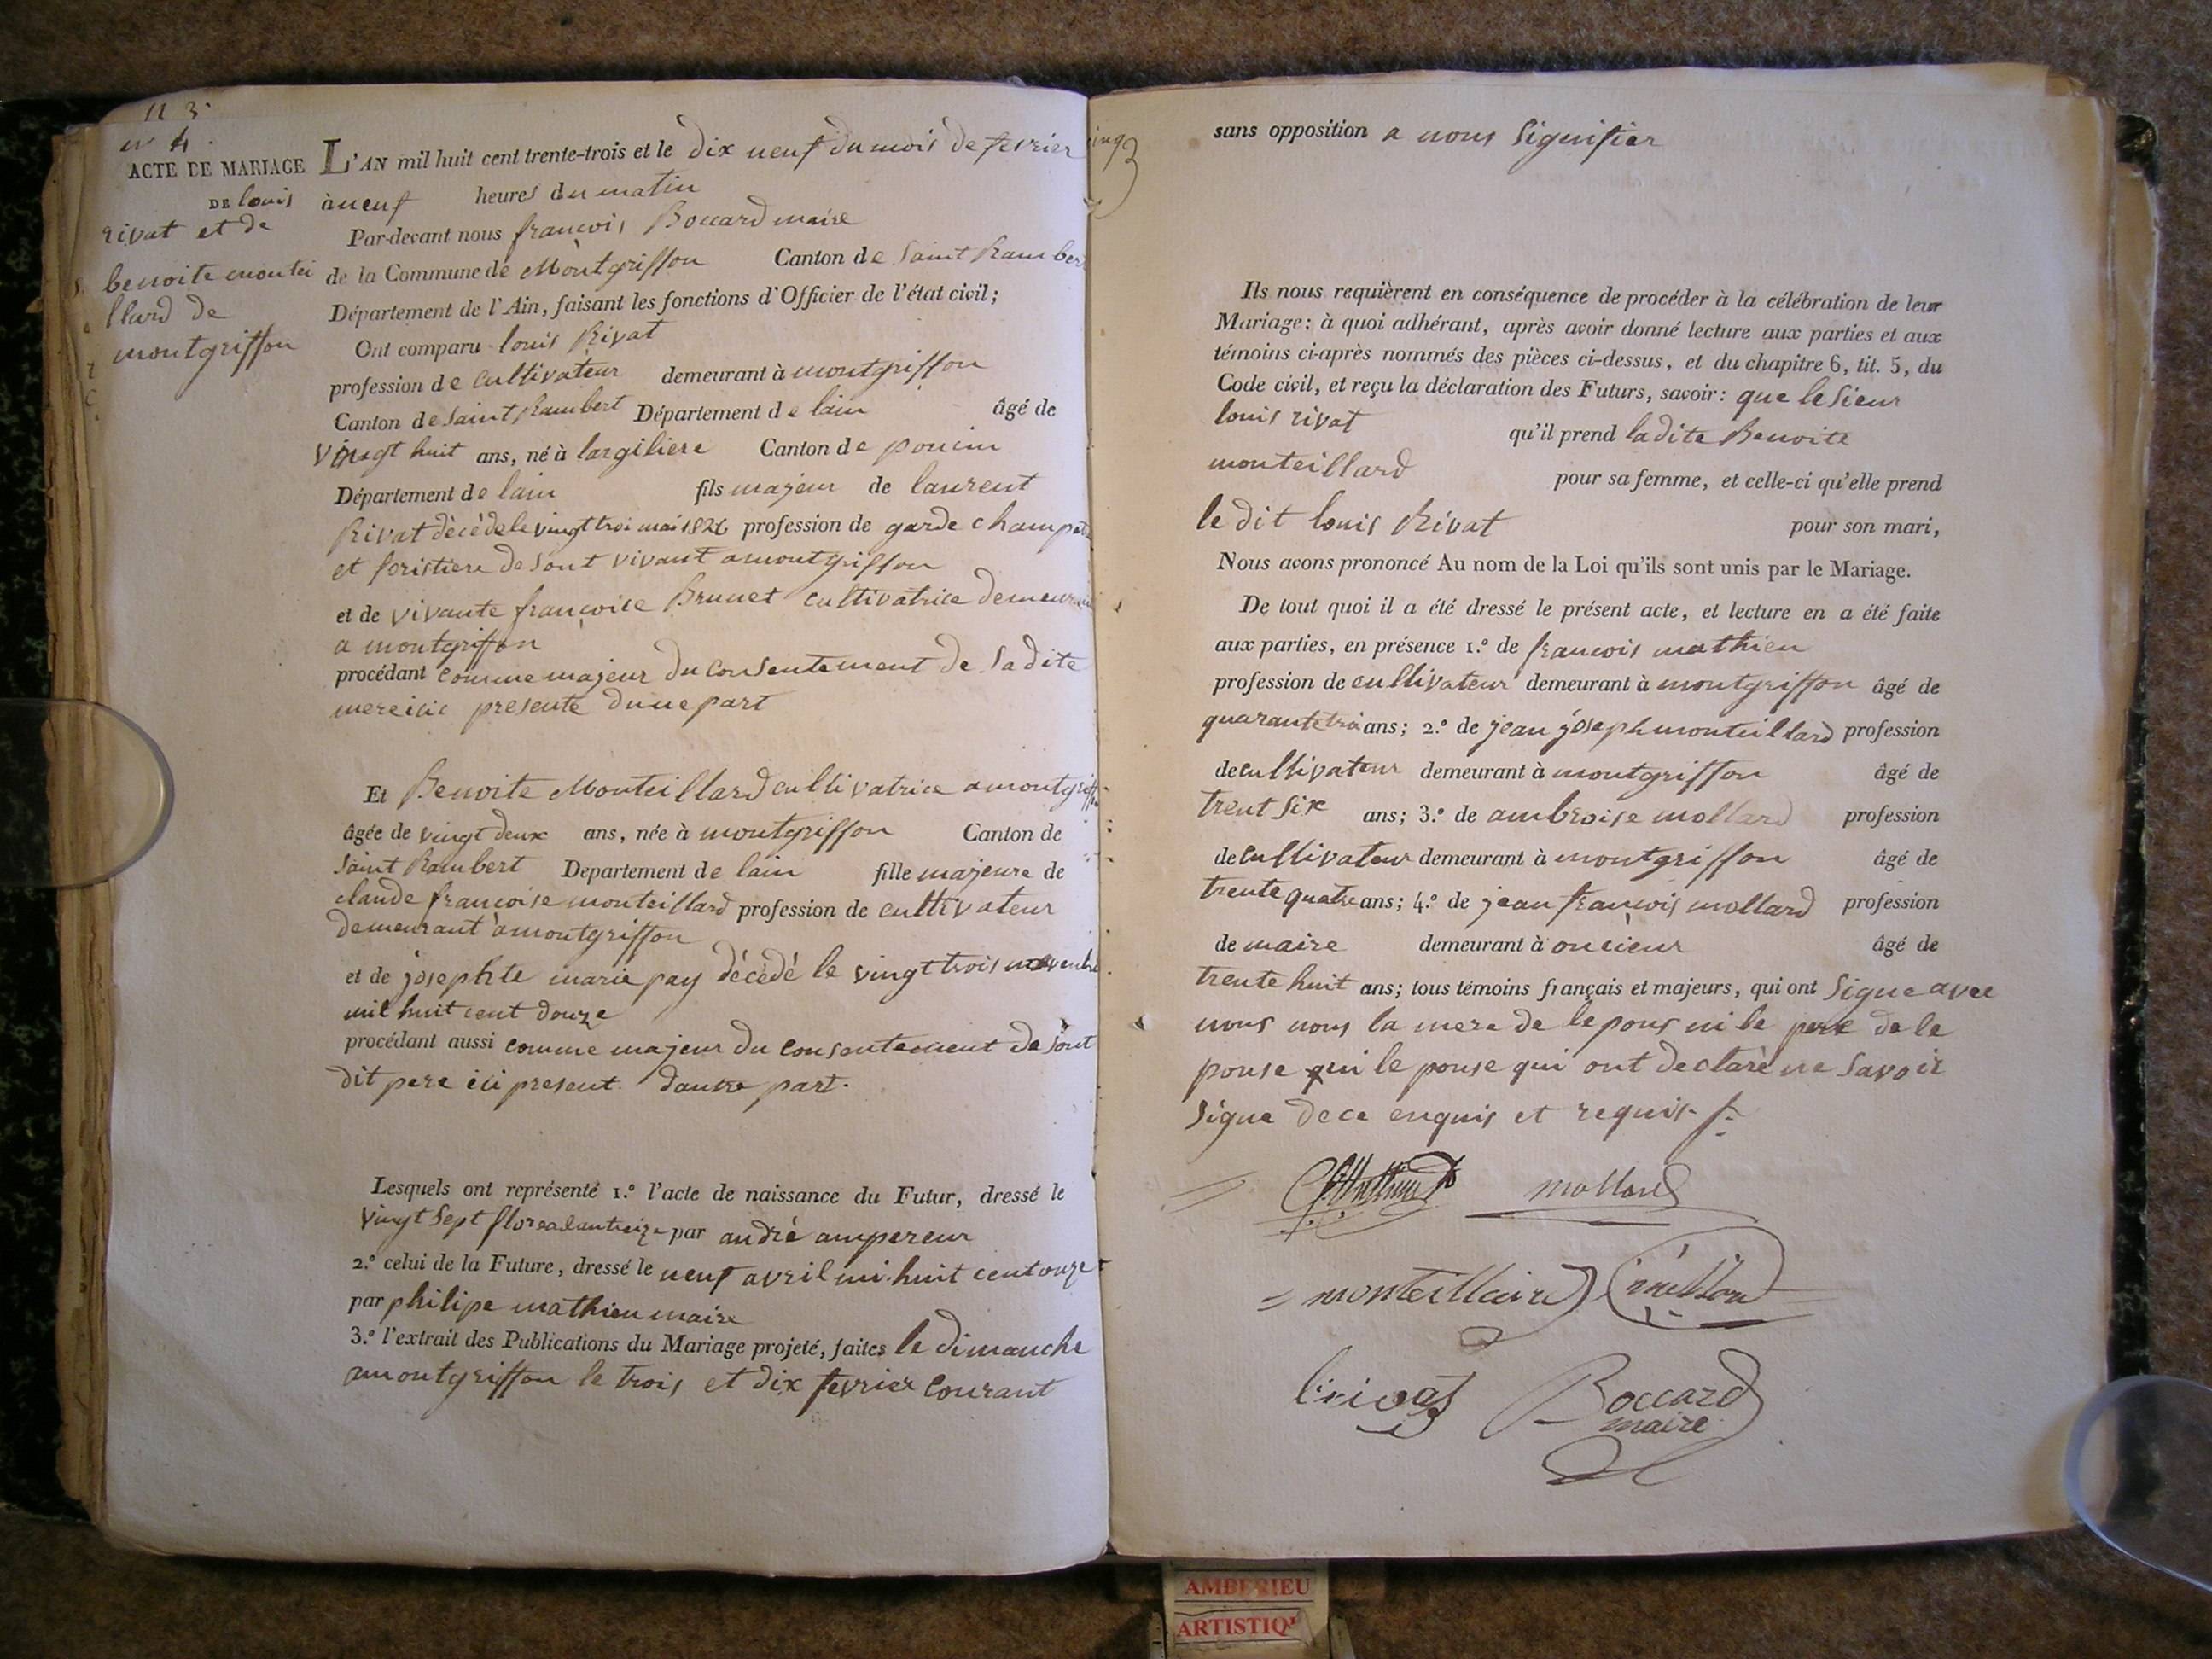 n 3.
n° 4.
ACTE DE MARIAGE
DE louis
rivat et de
benoite montei
llard de
montgriffon
L'AN mil huit cent trente-trois et le dix neuf du mois de fevrier
à neuf heures du matin
Par-devant nous françois Boccard maire
de la Commune de Montgriffon Canton de Saint Rambert
Département de l'Ain, faisant les fonctions d'Officier de l'état civil;
Ont comparu louis Rivat
profession de Cultivateur demeurant à montgriffon
Canton de Saint Rambert Département de lain âgé de
vingt huit ans, né à largiliere Canton de poncin
Département de lain fils majeur de laurent
Rivat dècèdé le vingt troi mai 1826 profession de garde champet
et foristiere de sont vivant a montgriffon
et de vivante françoise Brunet cultivatrice demeurant
a montgriffon
procédant comme majeur du consentement de sa dite
mere icic presente dune part
Et Benoite Monteillard cultivatrice a montgriffon
âgée de vingt deux ans, née à montgriffon Canton de
Saint Rambert Département de lain fille majeure de
claude françoise monteillard profession de cultivateur
demeurant à montgriffon
et de josephte marie pay décédé le vingt trois novembre
mil huit cent douze
procédant aussi comme majeur du consentement de sont
dit pere ici present dautre part.
Lesquels ont représenté 1.° l'acte de naissance du Futur, dressé le
vingt Sept floreal an treize par andré ampereur
2.° celui de la Future, dressé le neuf avril mi huit cent onze
par philipe mathieu maire
3.° l'extrait des Publications du Mariage projeté, faites le dimanche
a montgriffon le trois et dix fevrier Courant
sans opposition a nous Signifièr
Ils nous requièrent en conséquence de procéder à la célébration de leur
Mariage: à quoi adhérant, après avoir donné lecture aux parties et aux
témoins ci-après nommés des pièces ci-dessus, et du chapitre 6, tit. 5, du
Code civil, et reçu la déclaration des Futurs, savoir: que le Sieur
louis rivat qu'il prend la dite Benoite
monteillard pour sa femme, et celle-ci qu'elle prend
le dit louis Rivat pour son mari,
Nous avons prononcé Au nom de la Loi qu'ils sont unis par le Mariage.
De tout quoi il a été dressé le présent acte, et lecture en a été faite
aux parties, en présence 1.° de françois mathieu
profession de cultivateur demeurant à montgriffon âgé de
quarante troi ans; 2.° de jean joseph monteillard profession
de cultivateur demeurant à montgriffon âgé de
trent Six ans; 3.° de ambroise mollard profession
de Cultivateur demeurant à montgriffon âgé de
trente quatre ans; 4.° de jean françois mollard profession
de maire demeurant à oncieux âgé de
trente huit ans; tous témoins français et majeurs, qui ont Signe avec
nous nous la mere de lepous ni le pere de le
pouse qui le pouse qui ont declaré ne Savoir
Signe de ce enquis et requis
mollard
monteillaird
l. rivat Boccard
maire
AMBERIEU
ARTISTIQU